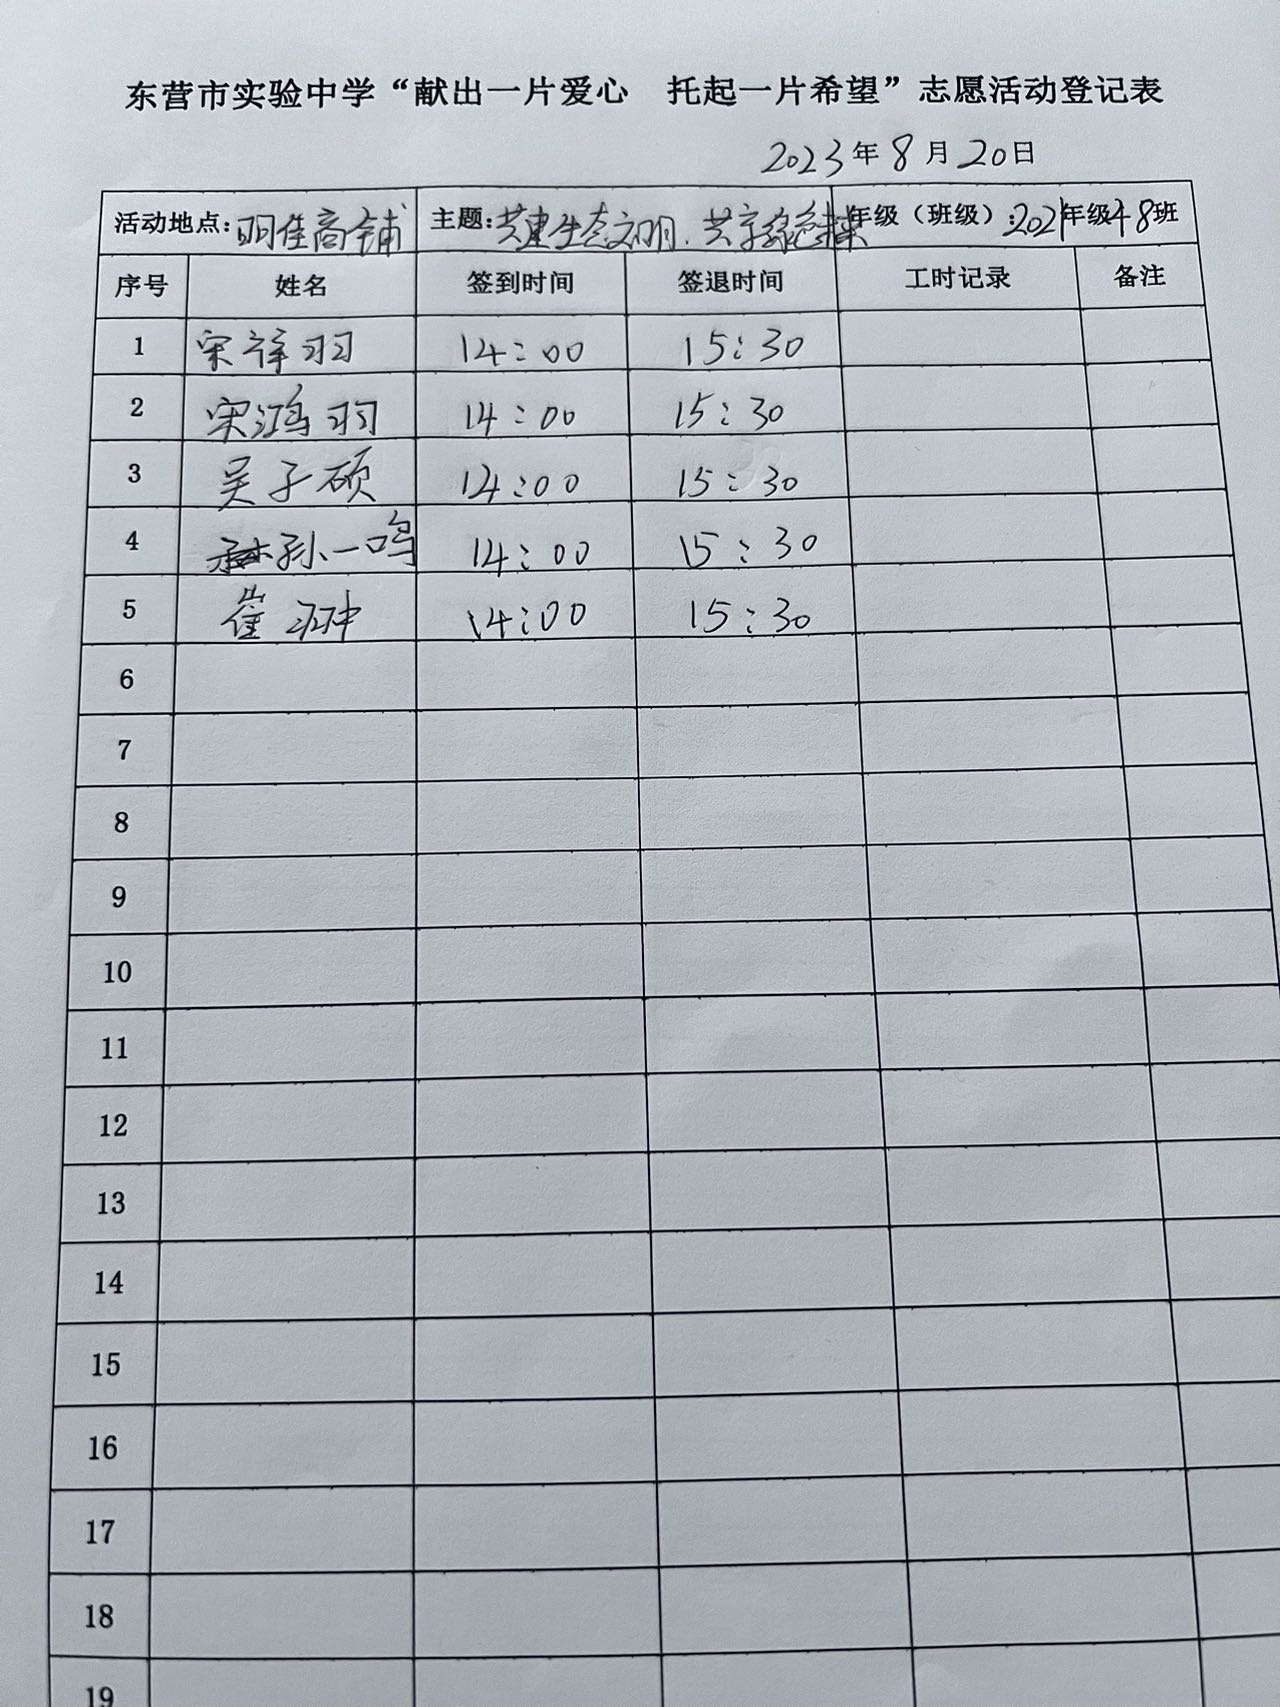 东营市实验中学“献出一片爱心 托起一片希望”志愿活动登记表
2023年8月20日
活动地点:明佳商铺 主题:共建生态文明.共享绿色未来 年级（班级）:2021年级48班
序号 姓名 签到时间 签退时间 工时记录 备注
1 宋祥羽 14:00 15:30
2 宋鸿羽 14:00 15:30
3 吴子硕 14:00 15:30
4 孙一鸣 14:00 15:30
5 崔 14:00 15:30
6
7
8
9
10
11
12
13
14
15
16
17
18
19